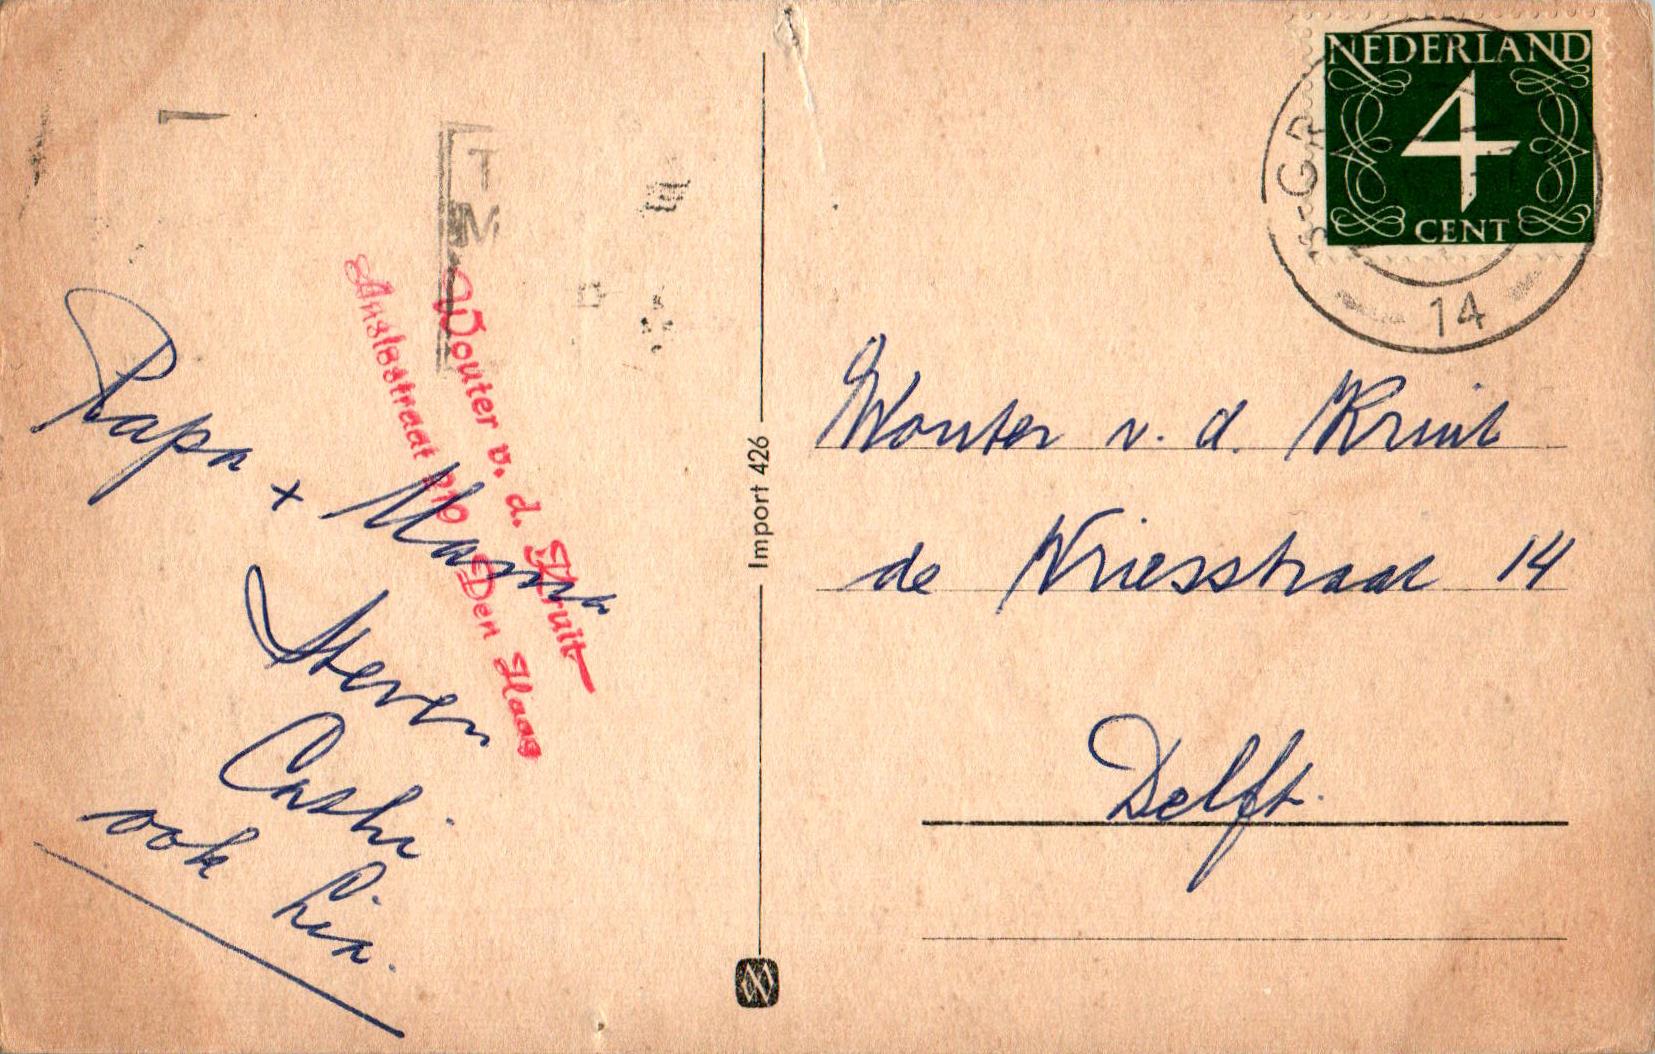 Papa
+ Mama
Steven
Cashi
ook Lia.
Wouter v. d. Kruit
straat 219 Den Haag
Import 426
NEDERLAND
4
CENT
'S-GR
14
Wouter v. d. Kruit
de Vriesstraat 14
Delft.